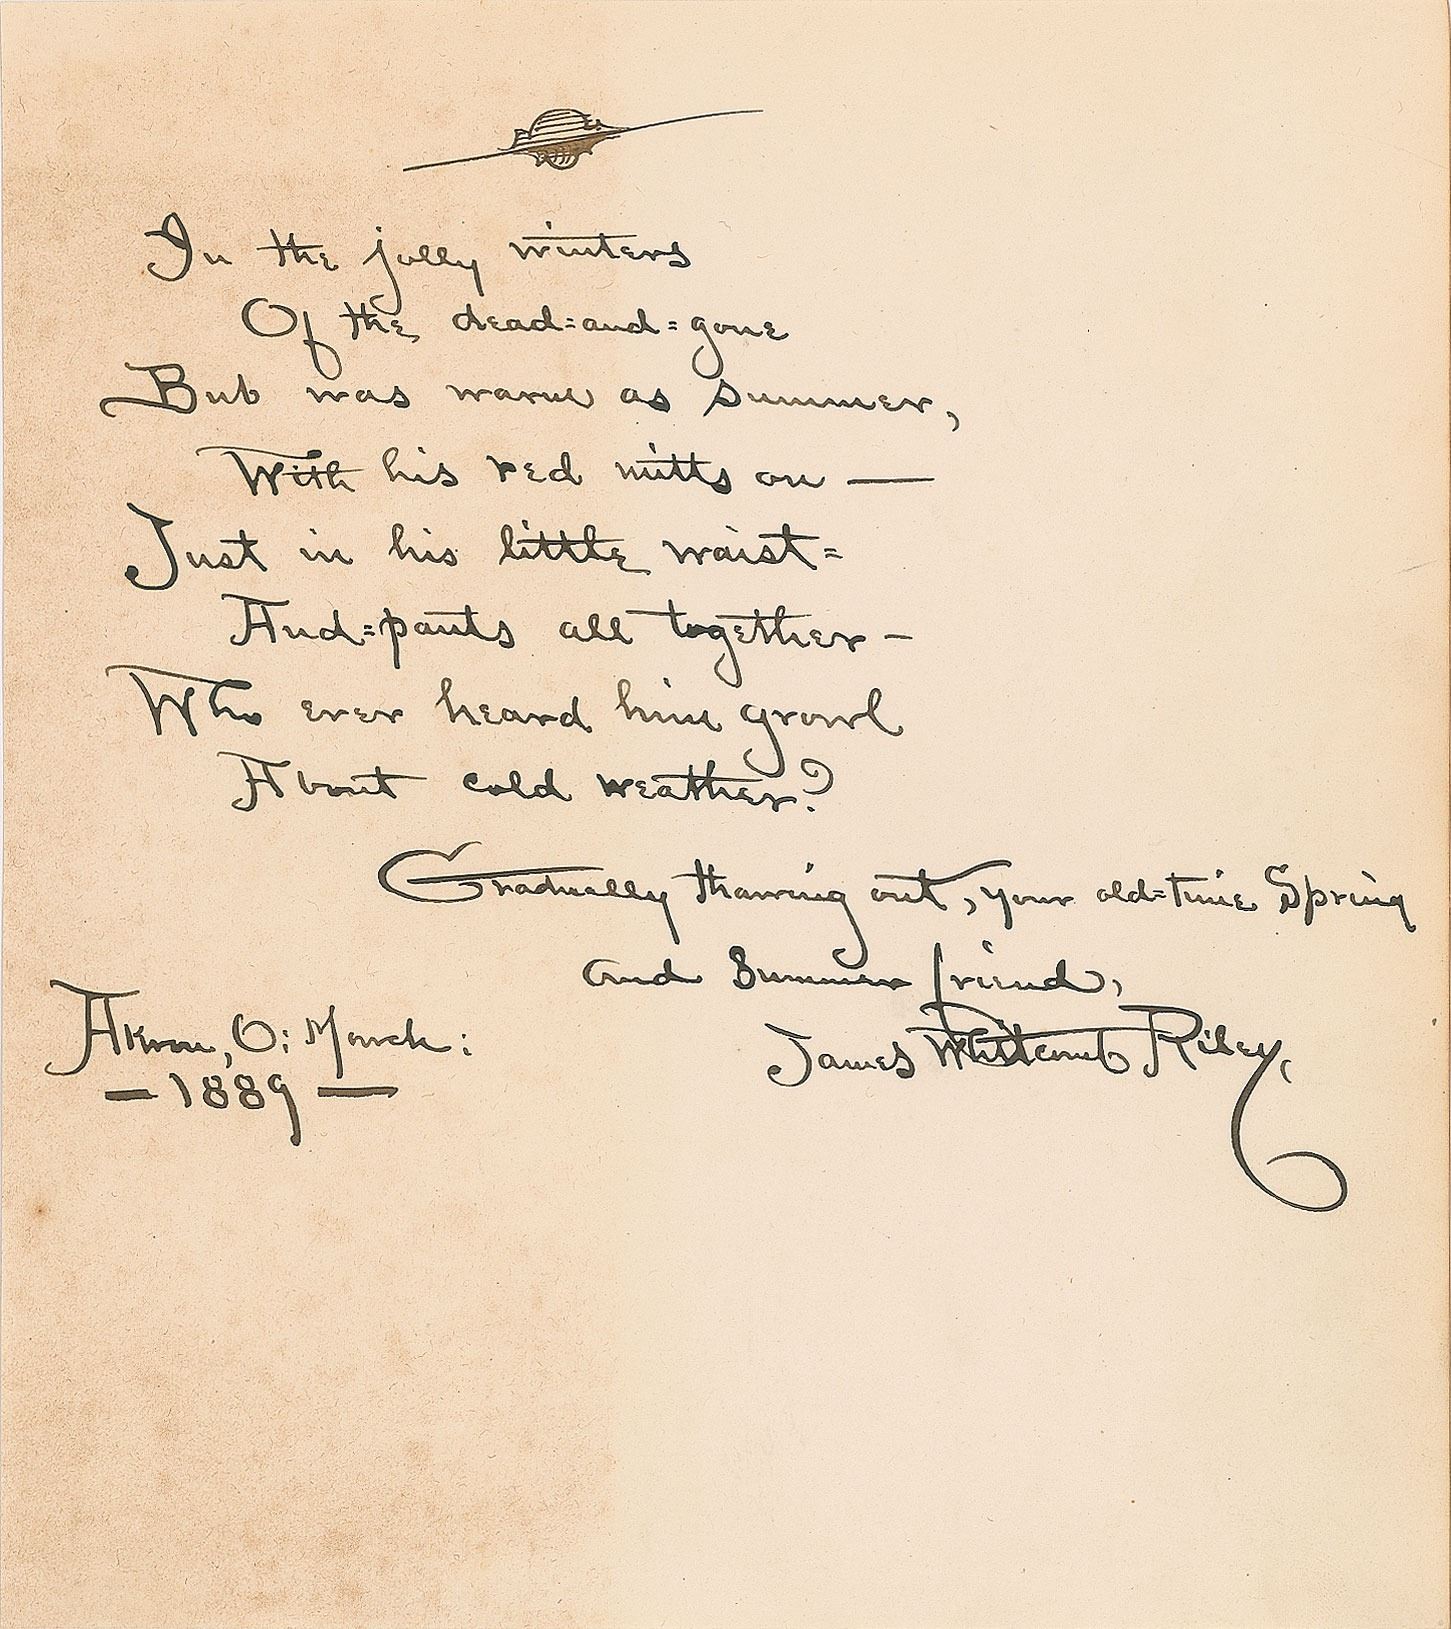 In the jolly winters
Of the dead=and=gone
Bub was warm as summer,
With his red mitts on —
Just in his little waist=
And=pants all together –
Who ever heard him growl
About cold weather?
Gradually thawing out, your old=time Spring
and Summer friend,
James Whitcomb Riley,
Akron, O; March:
— 1889 —